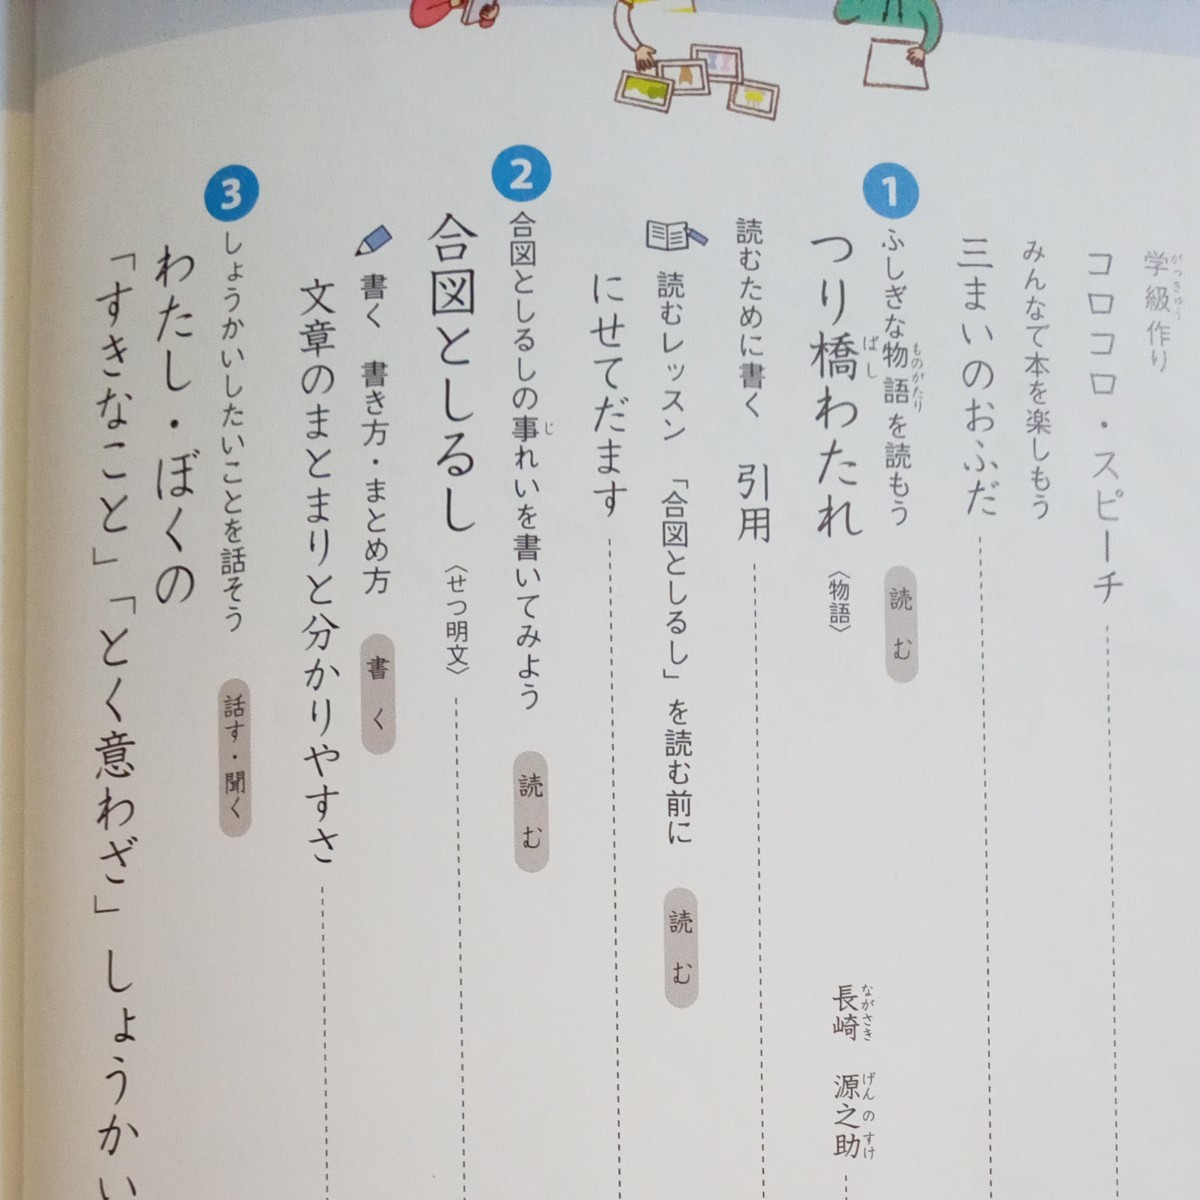 学級作り
がっきゅう
コロコロ・スピーチ
みんなで本を楽しもう
三まいのおふだ
1
ふしぎな物語を読もう 読む
ものがたり
つり橋わたれ 〈物語〉 長崎 源之助
ばし ながさき げんのすけ
読むために書く 引用
読むレッスン 「合図としるし」を読む前に 読む
にせてだます
2
合図としるしの事れいを書いてみよう 読む
じ
合図としるし 〈せつ明文〉
書く 書き方・まとめ方 書く
文章のまとまりと分かりやすさ
3
しょうかいしたいことを話そう 話す・聞く
わたし・ぼくの
「すきなこと」「とく意わざ」しょうかい